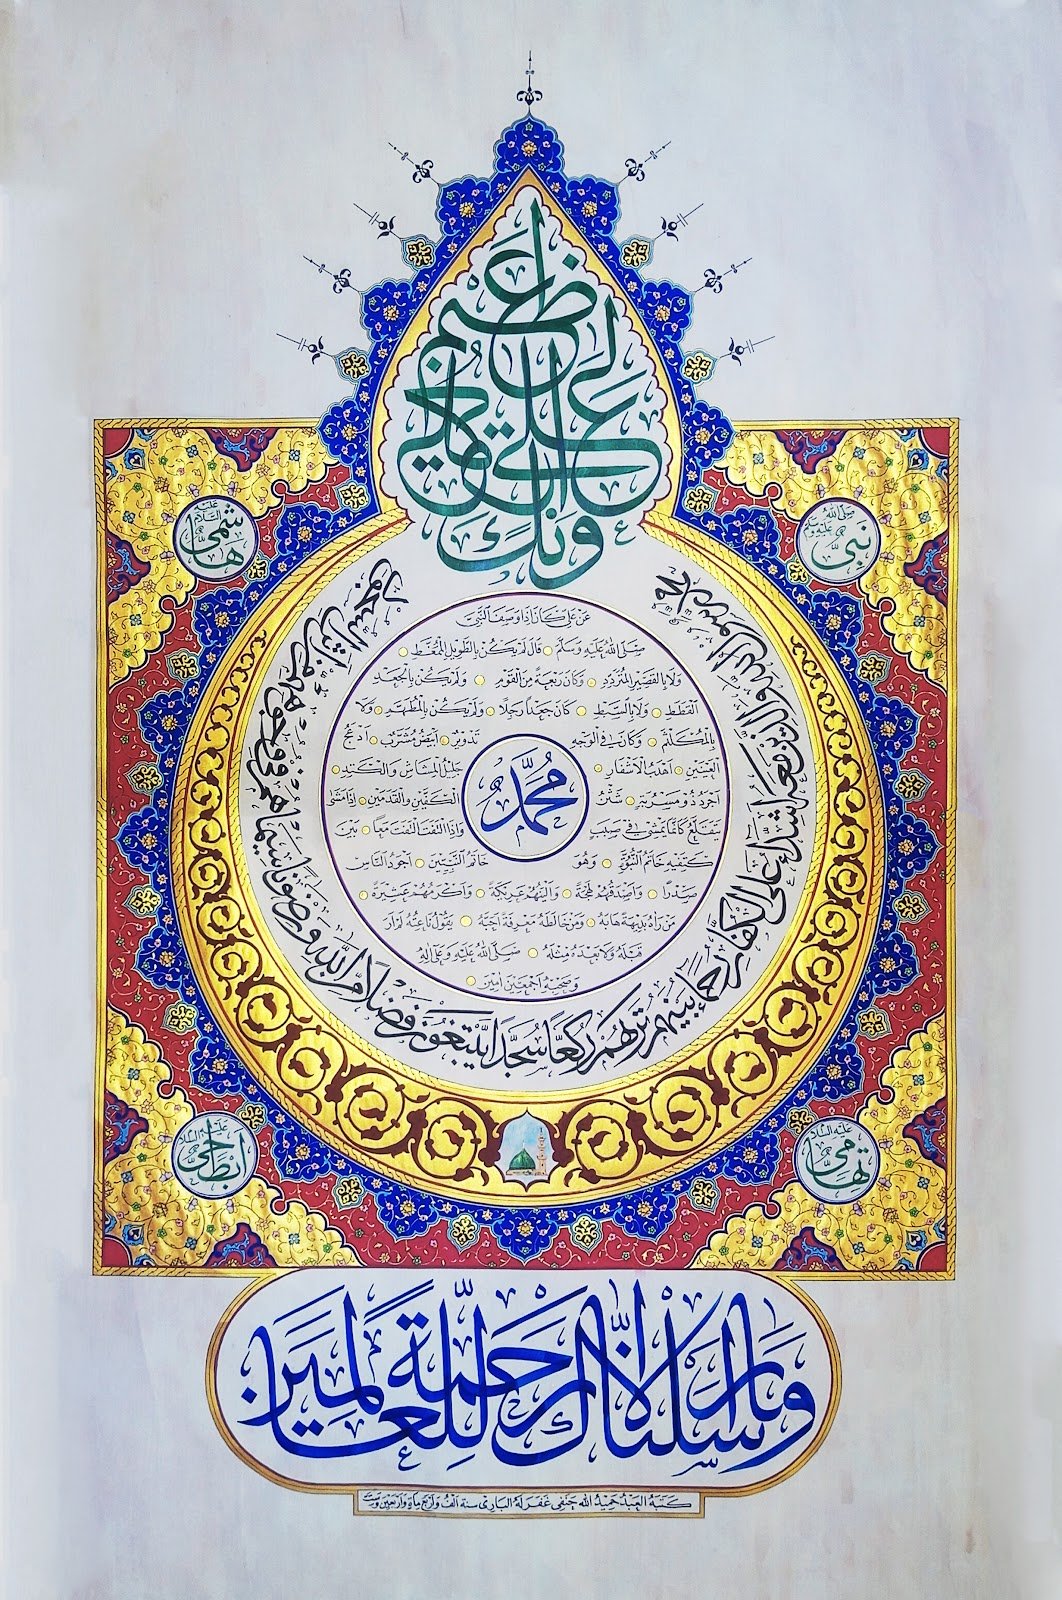 وإنك لعلى خلق عظيم
نبي صلى الله عليه وسلم
هاشمي عليه السلام
محمد رسول الله والذين معه أشداء على الكفار رحماء بينهم تراهم ركعا سجدا يبتغون فضلا من الله ورضوانا سيماهم في وجوههم من أثر السجود
عن علي كان إذا وصف النبي
صلى الله عليه وسلم قال لم يكن بالطويل الممغط
ولا بالقصير المتردد وكان ربعة من القوم ولم يكن بالجعد
القطط ولا بالسبط كان جعدا رجلا ولم يكن بالمطهم ولا
بالمكلثم وكان في الوجه تدوير أبيض مشرب أدعج
العينين أهدب الأشفار جليل المشاش والكتد
أجرد ذو مسربة شثن الكفين والقدمين إذا مشى
يتقلع كأنما يمشي في صبب وإذا التفت التفت معا بين
كتفيه خاتم النبوة وهو خاتم النبيين أجود الناس
صدرا وأصدقهم لهجة وألينهم عريكة وأكرمهم عشيرة
من رآه بديهة هابه ومن خالطه معرفة أحبه يقول ناعته لم أر
قبله ولا بعده مثله صلى الله عليه وعلى آله
وصحبه أجمعين آمين
محمد
تهامي عليه السلام
أبطحي عليه السلام
وما أرسلناك إلا رحمة للعالمين
كتبه العبد حميد الله حنفي غفر له الباري سنة ألف وأربع مائة وأربعين